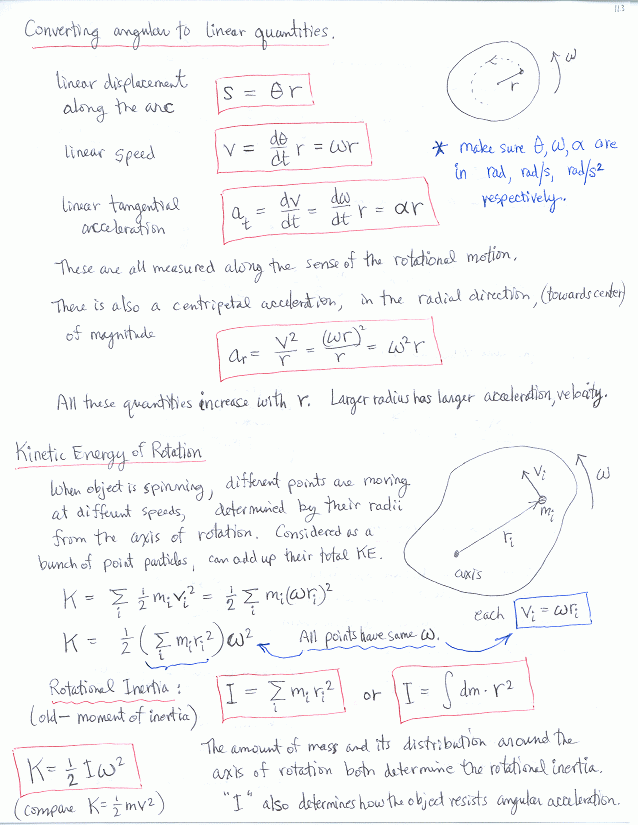 113
Converting angular to linear quantities.
linear displacement
along the arc
S = θ r
r
ω
linear speed
v = dθ/dt r = ωr
* make sure θ, ω, α are
in rad, rad/s, rad/s²
respectively.
linear tangential
acceleration
a_t = dv/dt = dω/dt r = αr
These are all measured along the sense of the rotational motion.
There is also a centripetal acceleration, in the radial direction, (towards center)
of magnitude
a_r = v²/r = (ωr)²/r = ω²r
All these quantities increase with r. Larger radius has larger acceleration, velocity.
Kinetic Energy of Rotation
When object is spinning, different points are moving
at different speeds, determined by their radii
from the axis of rotation. Considered as a
bunch of point particles, can add up their total KE.
v_i
ω
m_i
r_i
axis
K = Σ_i ½ m_i v_i² = ½ Σ_i m_i (ωr_i)²
each v_i = ωr_i
K = ½ (Σ_i m_i r_i²) ω² All points have same ω.
Rotational Inertia:
(old – moment of inertia)
I = Σ_i m_i r_i² or I = ∫ dm · r²
K = ½ I ω²
(compare K = ½ mv²)
The amount of mass and its distribution around the
axis of rotation both determine the rotational inertia.
"I" also determines how the object resists angular acceleration.